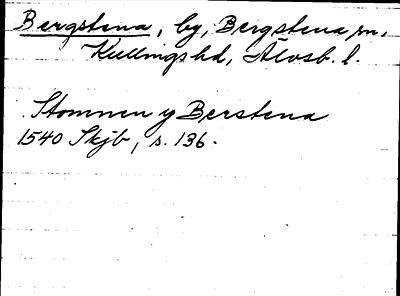 Bergstena, by, Bergstena sn,
Kullings hd, Älvsb. l.
Stommen y Berstena
1540 Skjb, s. 136.